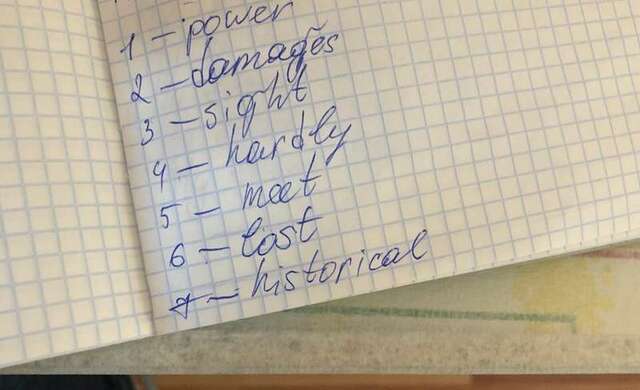 1 - power
2 - damages
3 - sight
4 - hardly
5 - meet
6 - lost
7 - historical